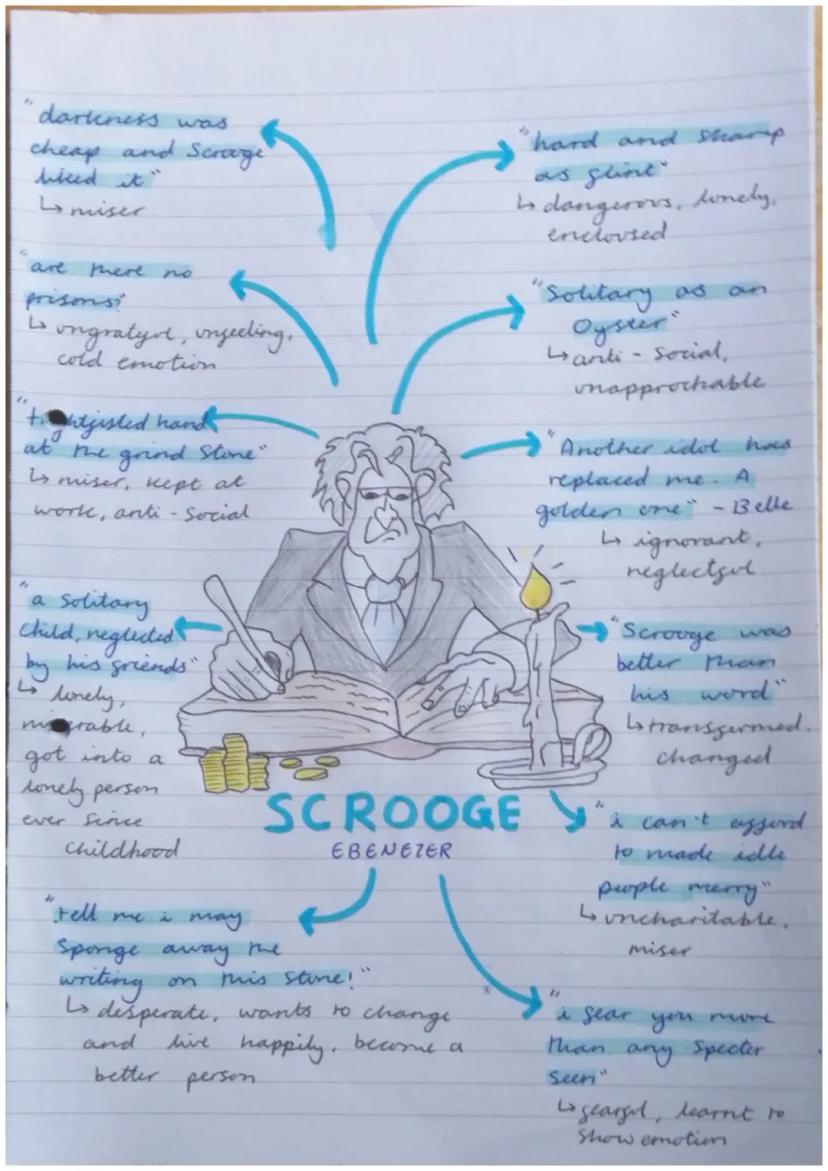 "darkness was
cheap and Scrooge
liked it"
↳ miser
"are there no
prisons?"
↳ ungrateful, unfeeling,
cold emotion
"t htfisted hand
at the grind stone"
↳ miser, kept at
work, anti-social
"a solitary
child, neglected
by his friends"
↳ lonely,
m erable,
got into a
lonely person
ever since
childhood
"tell me i may
sponge away the
writing on this stone!"
↳ desperate, wants to change
and live happily, become a
better person
SCROOGE
EBENEZER
"hard and sharp
as flint"
↳ dangerous, lonely,
enclousd
"Solitary as an
Oyster"
↳ anti-social,
unapprochable
"Another idol has
replaced me. A
golden one" - Belle
↳ ignorant,
neglectful
"Scrooge was
better than
his word"
↳ transfermed.
changed
"i can't afford
to made idle
people merry"
↳ uncharitable,
miser
"i fear you more
than any specter
seen"
↳ fearful, learnt to
show emotion